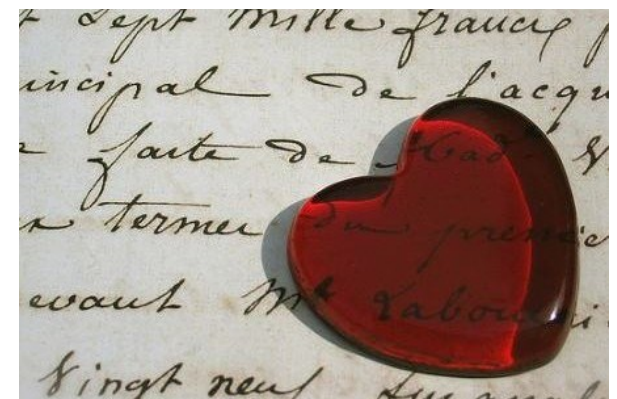 Sept Mille francs
incipal de l'acqu
faite de Mad.
termes du premie
evant Me
Vingt neuf